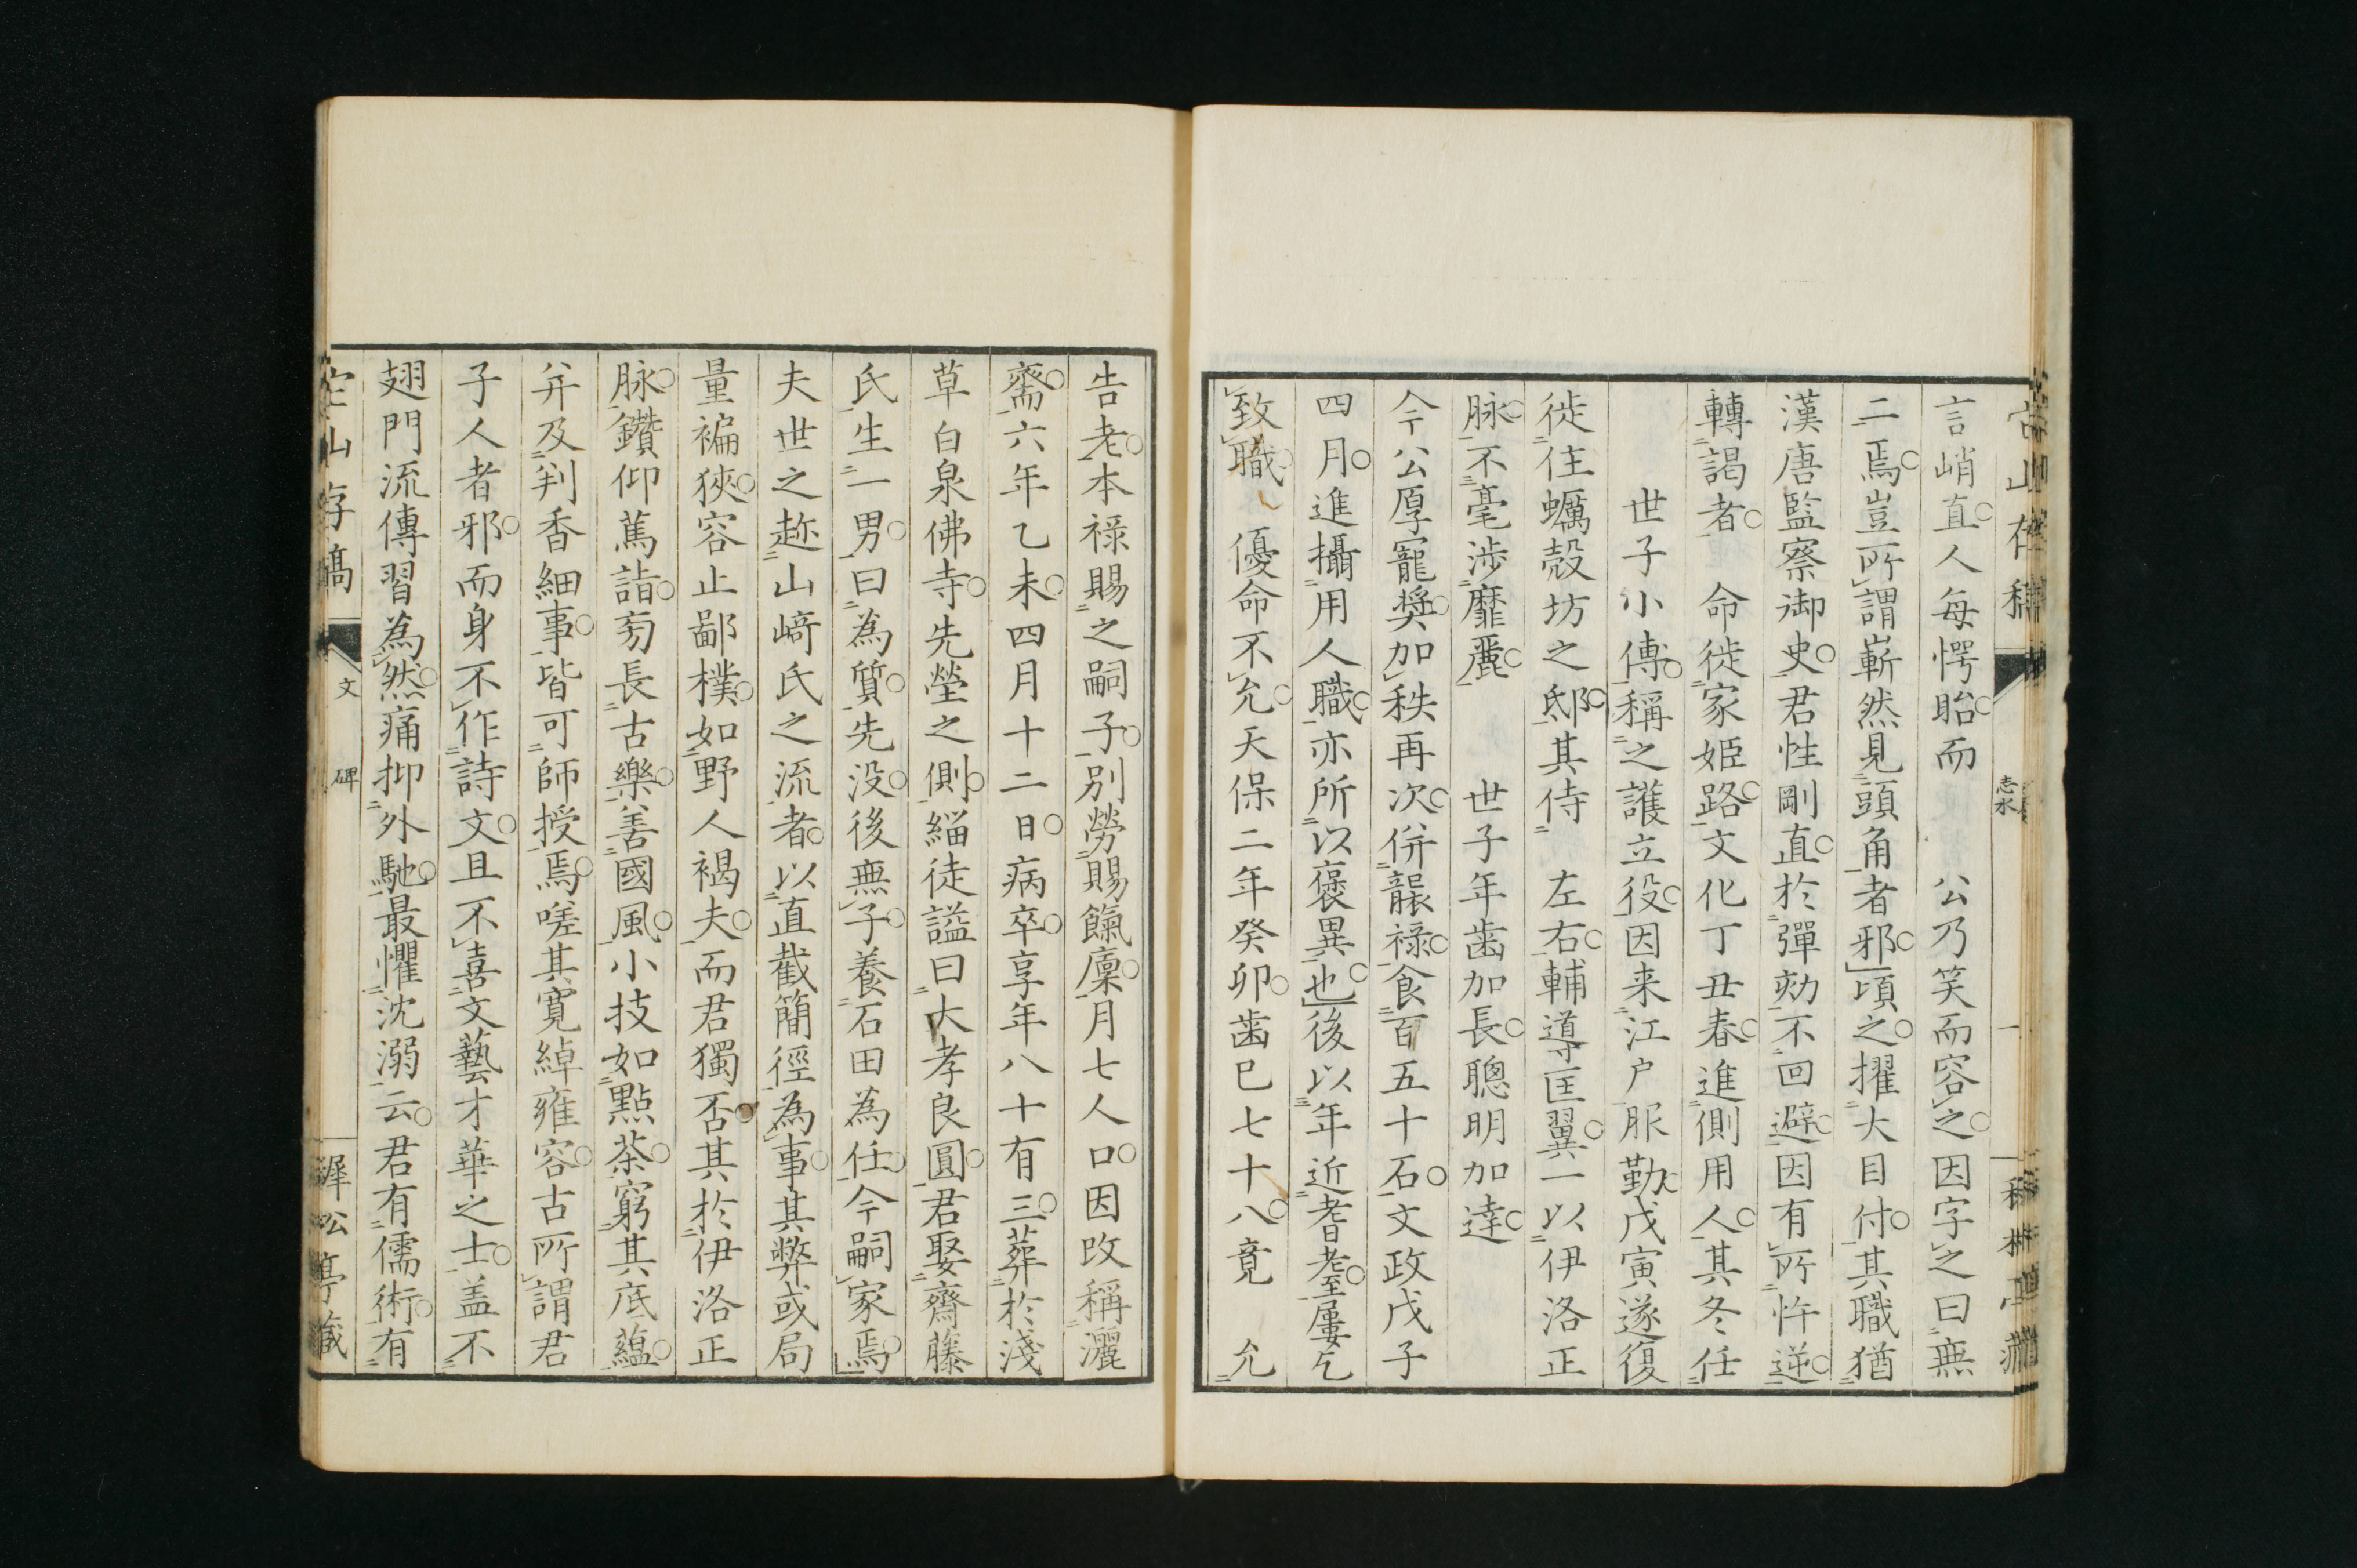 言峭直人毎愕眙而　公乃笑而容之因字之曰無
二焉豈所謂嶄然見頭角者邪頃之擢大目付其職猶
漢唐監察御史君性剛直於彈劾不回避因有所忤逆
轉謁者　命徙家姫路文化丁丑春進側用人其冬任
世子小傳稱之護立役因来江户服勤戊寅遂復
徙住蠣殻坊之邸其侍　左右輔導匡翼一以伊洛正
脉不毫渉靡麗　世子年歯加長聰明加達
今公厚寵奨加秩再次併襲禄食百五十石文政戊子
四月進攝用人職亦所以褒異也後以年近耆老至屢乞
致職　優命不允天保二年癸卯歯巳七十八竟　允
告老本禄賜之嗣子別勞賜餼廩月七人口因改稱灑
齋六年乙未四月十二日病卒享年八十有三葬於淺
草白泉佛寺先塋之側緇徒謚曰大孝良圓君娶齋藤
氏生一男曰為質先没後無子養石田為任今嗣家焉
夫世之趂山﨑氏之流者以直截簡徑為事其弊或局
量褊狹容止鄙樸如野人褐夫而君獨否其於伊洛正
脉鑽仰篤詣旁長古樂善國風小技如點茶窮其底蘊
并及判香細事皆可師授焉嗟其寛綽雍容古所謂君
子人者邪而身不作詩文且不喜文藝才華之士盖不
翅門流傳習為然痛抑外馳最懼沈溺云君有儒術有
山存稿
文
碑